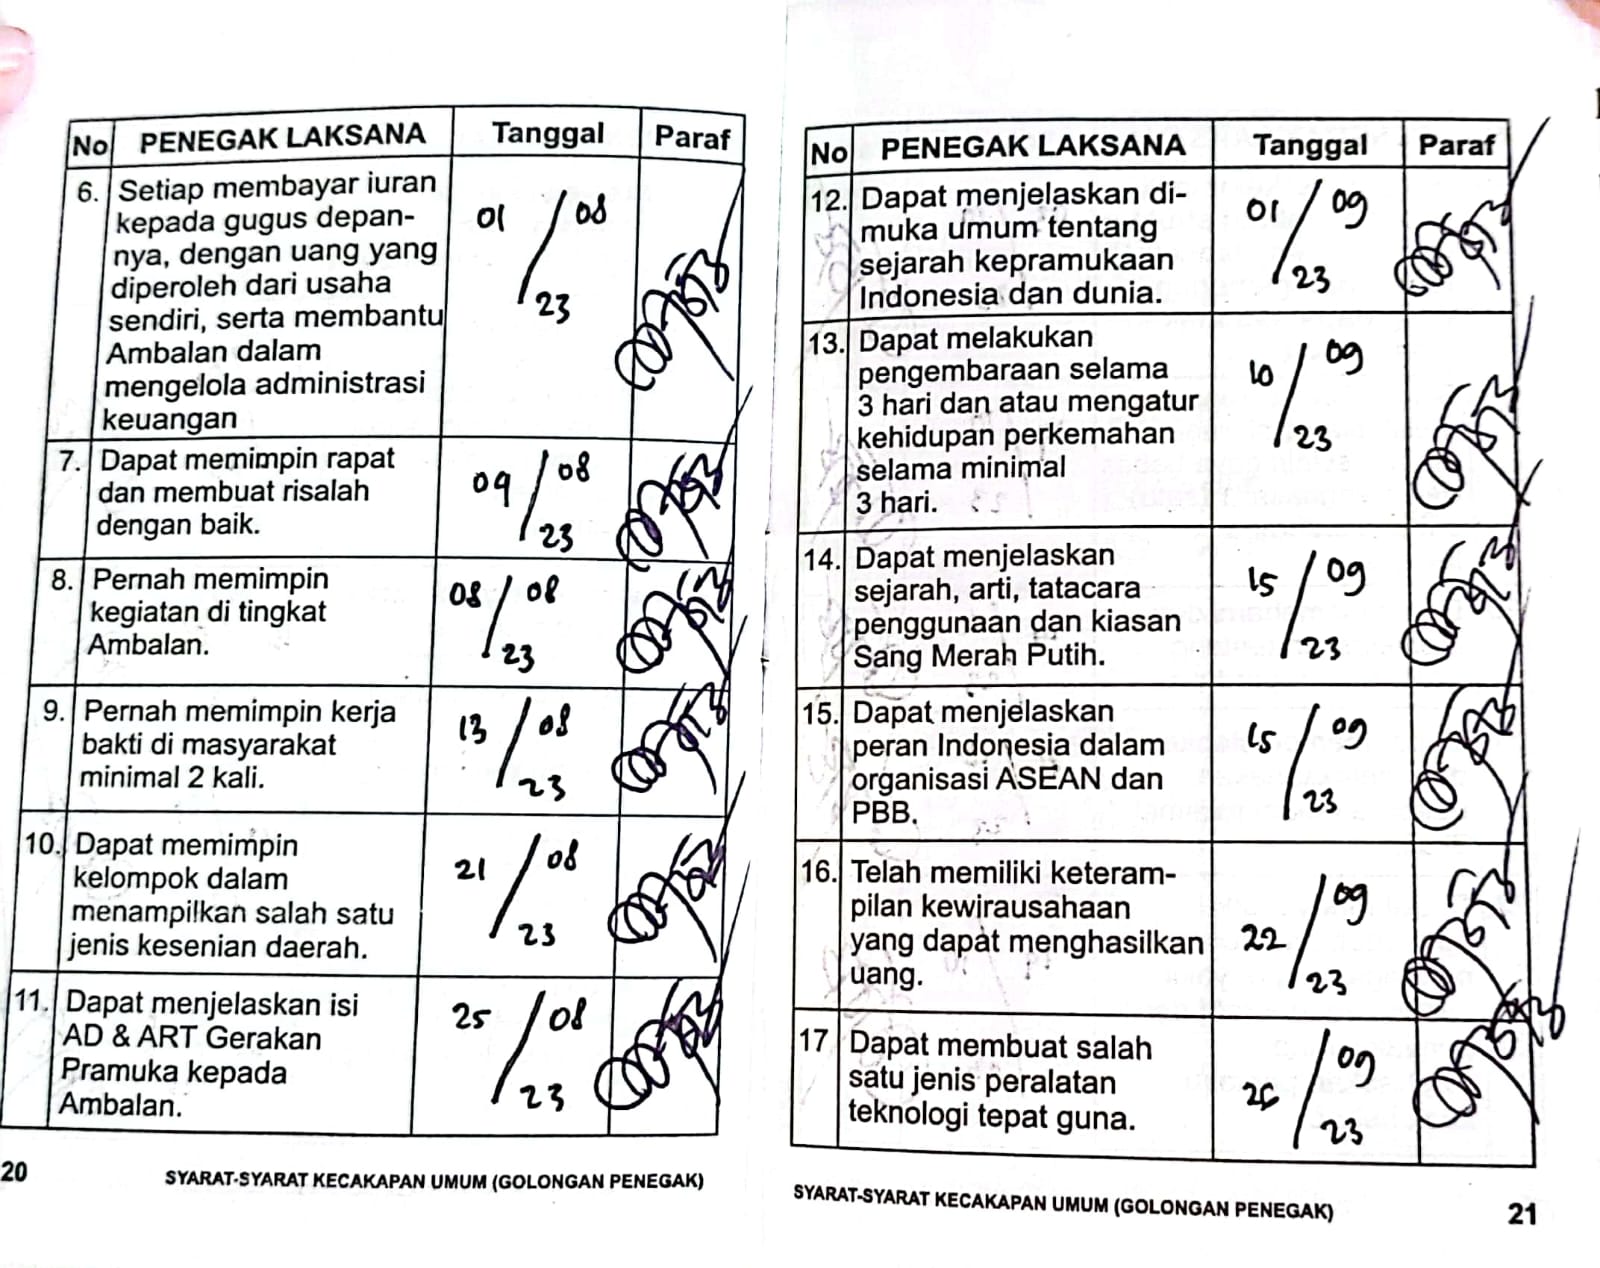 No PENEGAK LAKSANA Tanggal Paraf
6. Setiap membayar iuran
kepada gugus depan-
nya, dengan uang yang
diperoleh dari usaha
sendiri, serta membantu
Ambalan dalam
mengelola administrasi
keuangan
01/08
23
7. Dapat memimpin rapat
dan membuat risalah
dengan baik.
09/08
23
8. Pernah memimpin
kegiatan di tingkat
Ambalan.
08/08
23
9. Pernah memimpin kerja
bakti di masyarakat
minimal 2 kali.
13/08
23
10. Dapat memimpin
kelompok dalam
menampilkan salah satu
jenis kesenian daerah.
21/08
23
11. Dapat menjelaskan isi
AD & ART Gerakan
Pramuka kepada
Ambalan.
25/08
23
20 SYARAT-SYARAT KECAKAPAN UMUM (GOLONGAN PENEGAK)
No PENEGAK LAKSANA Tanggal Paraf
12. Dapat menjelaskan di-
muka umum tentang
sejarah kepramukaan
Indonesia dan dunia.
01/09
23
13. Dapat melakukan
pengembaraan selama
3 hari dan atau mengatur
kehidupan perkemahan
selama minimal
3 hari.
10/09
23
14. Dapat menjelaskan
sejarah, arti, tatacara
penggunaan dan kiasan
Sang Merah Putih.
15/09
23
15. Dapat menjelaskan
peran Indonesia dalam
organisasi ASEAN dan
PBB.
15/09
23
16. Telah memiliki keteram-
pilan kewirausahaan
yang dapat menghasilkan
uang.
22/09
23
17. Dapat membuat salah
satu jenis peralatan
teknologi tepat guna.
26/09
23
SYARAT-SYARAT KECAKAPAN UMUM (GOLONGAN PENEGAK) 21